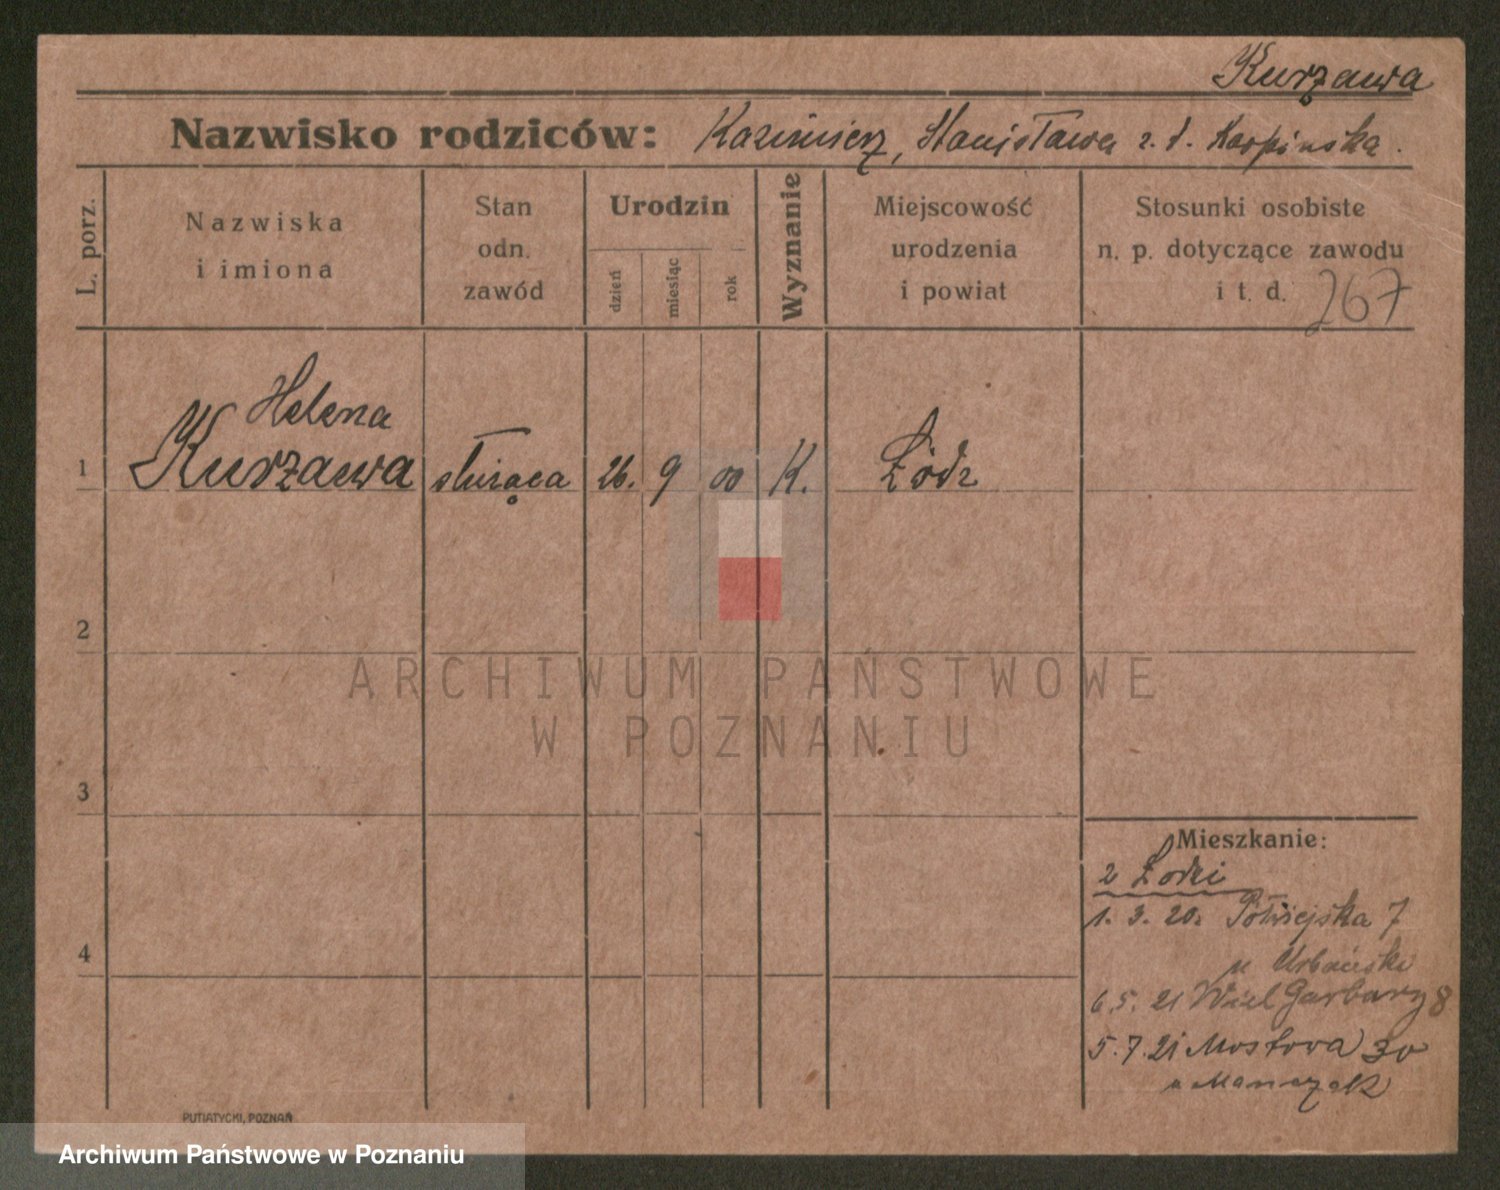 Kurzawa
Nazwisko rodziców: Kazimierz, Stanisława z d. Karpińska.
L. porz.
Nazwiska
i imiona
Stan
odn.
zawód
Urodzin
dzień
miesiąc
rok
Wyznanie
Miejscowość
urodzenia
i powiat
Stosunki osobiste
n. p. dotyczące zawodu
i t. d. 267
Helena
1 Kurzawa służąca 26. 9 00 K. Łódz
2
3
4
Mieszkanie:
z Łodzi
1. 3. 20. Półwiejska 7
u Urbański
6. 5. 21 Wiel Garbary 8
5. 7. 21 Mostowa 30
u Manczak
PUTIATYCKI, POZNAŃ
ARCHIWUM PAŃSTWOWE
W POZNANIU
Archiwum Państwowe w Poznaniu